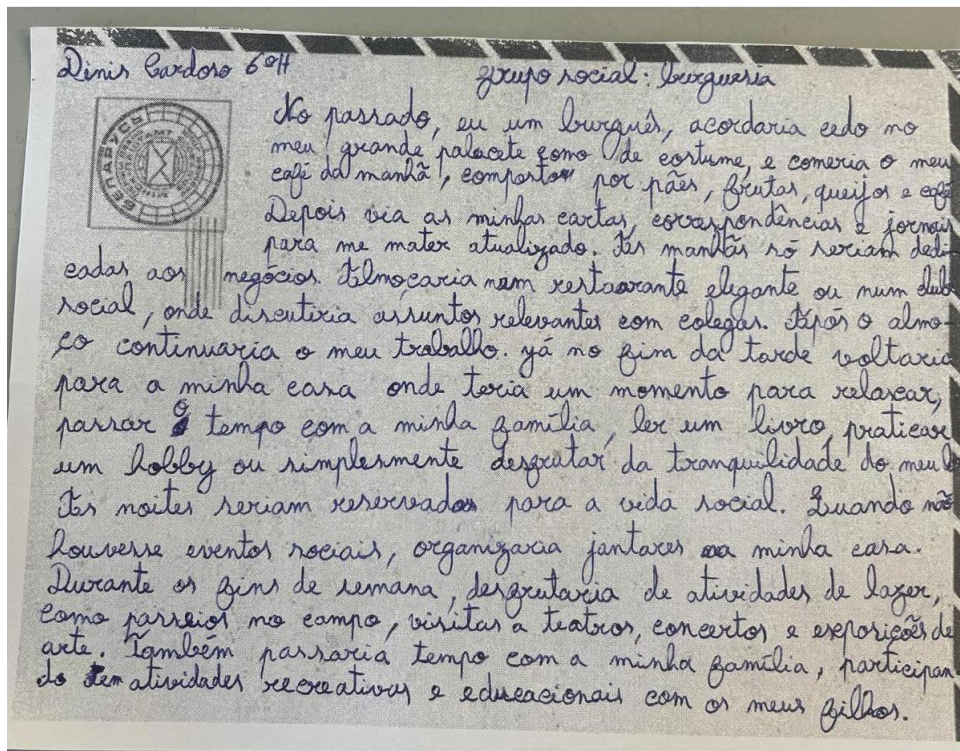 Dinis Cardoso 6ºH
grupo social: burguesia
БЕЛАВУСЬ
No passado, eu um burguês, acordaria cedo no
meu grande palacete como de costume, e comeria o meu
café da manhã, composto por pães, frutas, queijos e café
Depois via as minhas cartas, correspondências e jornais
para me mater atualizado. As manhãs só seriam dedi-
cadas aos negócios. Almoçaria num restaurante elegante ou num club
social, onde discutiria assuntos relevantes com colegas. Após o almo-
ço continuaria o meu trabalho. Já no fim da tarde voltaria
para a minha casa onde teria um momento para relaxar,
passar o tempo com a minha família, ler um livro, praticar
um hobby ou simplesmente desfrutar da tranquilidade do meu l
As noites seriam reservadas para a vida social. Quando não
houvesse eventos sociais, organizaria jantares na minha casa.
Durante os fins de semana, desfrutaria de atividades de lazer,
como passeios no campo, visitas a teatros, concertos e exposições de
arte. Também passaria tempo com a minha família, participan
do em atividades recreativas e educacionais com os meus filhos.